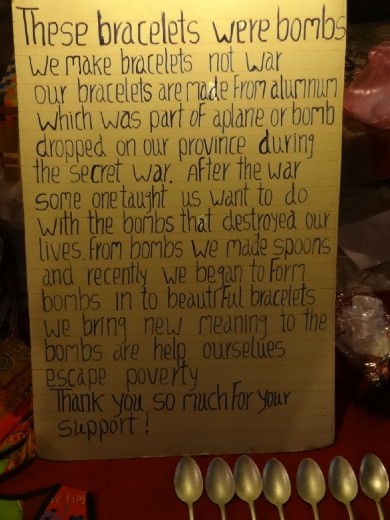 These bracelets were bombs
We make bracelets not war
our bracelets are made from alumnum
which was part of aplane or bomb
dropped on our province during
the secret war. After the war
some one taught us want to do
with the bombs that destroyed our
lives. From bombs we made spoons
and recently we began to form
bombs in to beautiful bracelets
we bring new meaning to the
bombs are help ourselues
escape poverty
Thank you so much For your
support!